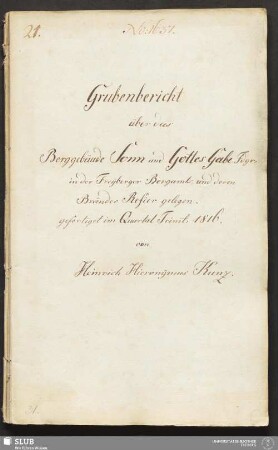 21.
Grubenbericht
über das
Berggebäude Sonn und Gottes Gabe Fdgr.
in der Freyberger Bergamts und deren
Brander Refier gelegen.
gefertiget im Quartal Trinit. 1816.
von
Heinrich Hieronÿmus Kunz.
SLUB